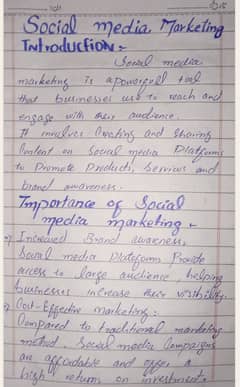 Social Media Marketing
Introduction :-
Social media
marketing is a powerfull tool
that businesses use to reach and
engage with their audience.
It involves Creating and Sharing
Content on Social media Platforms
to Promote Products, Services and
brand awareness.
Importance of Social
media marketing -
Increased Brand awareness,
Social media Platforms Provide
access to large audience, helping
businesses increase their visibility.
Cost-Effective marketing:
Compared to traditional marketing
method Social media Campaigns
an affordable and offer a
high return on investments